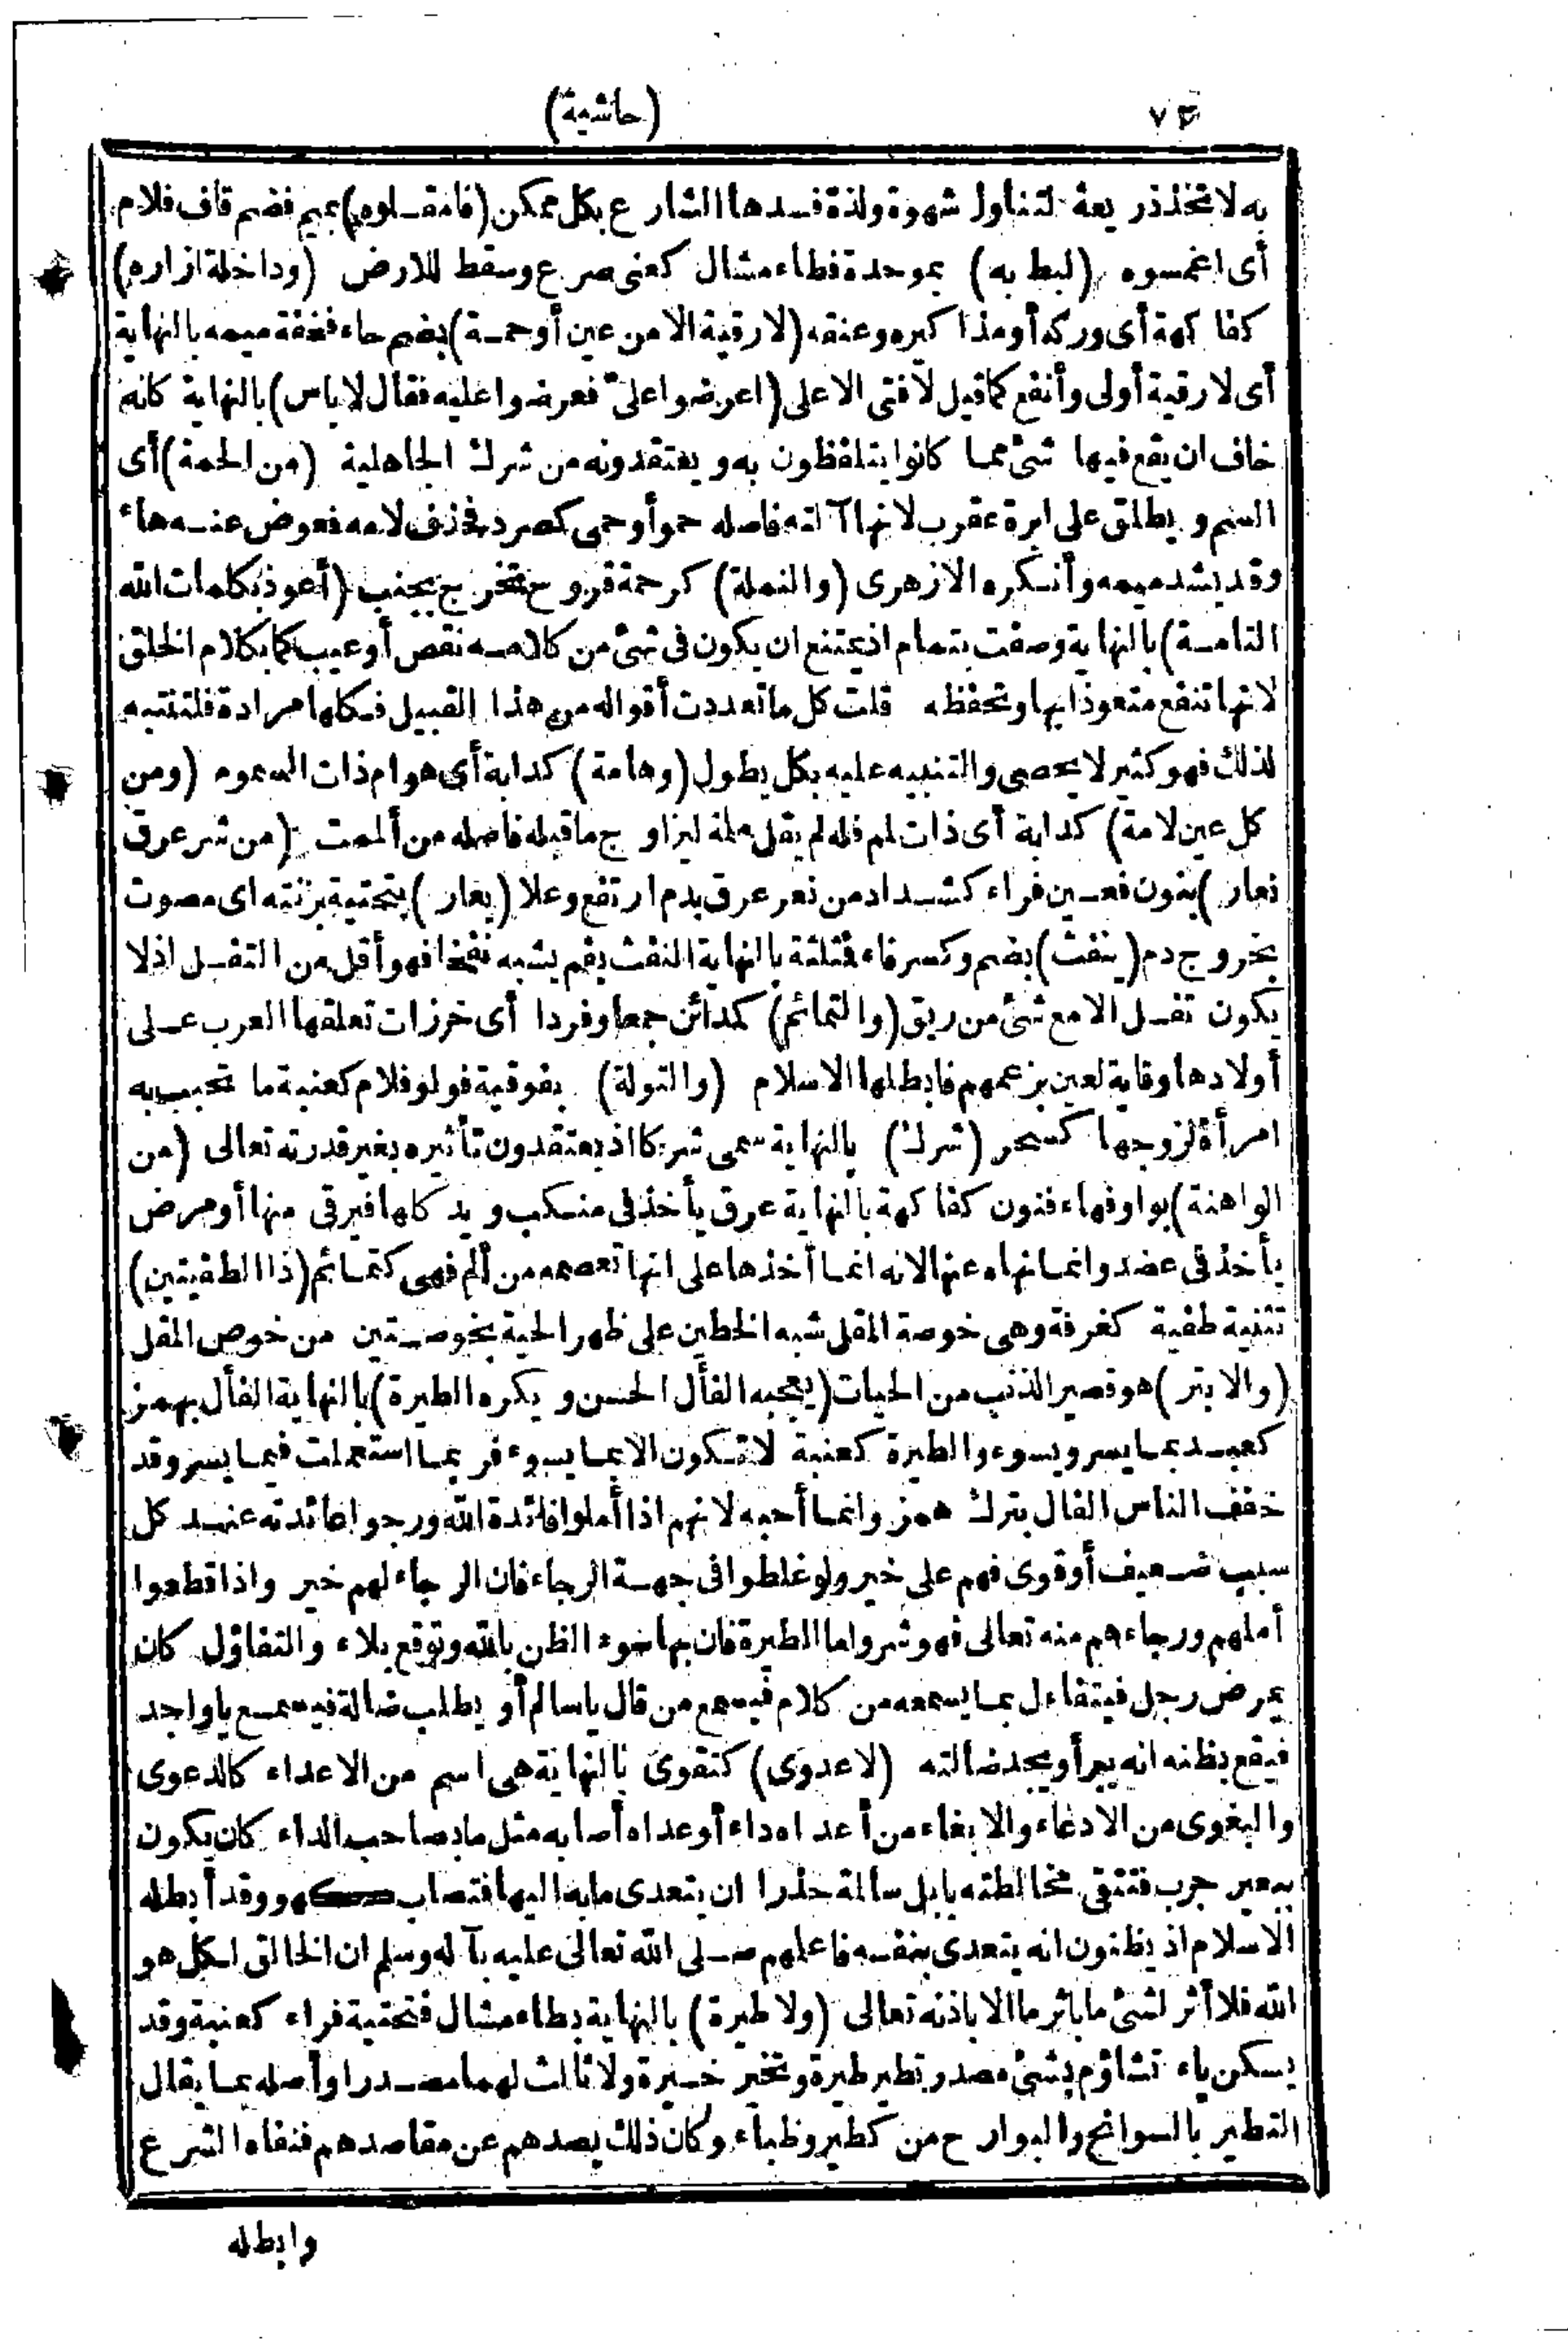 (حاشية)
به لا تتخذ ذريعة لتناول شهوة ولذة فسدها الشارع بكل ممكن (فامقلوه) بميم فضم قاف فلام
أى اغمسوه (لبط به) بموحدة فطاء مشال كعنى صرع وسقط للارض (وداخلة ازاره)
كفاكهة أى وركه أو مذاكيره وعنقه (لا رقية الا من عين أو حمة) بضم حاء فخفة ميمه بالنهاية
أى لا رقية أولى وأنفع كما قيل لا فتى الا على (اعرضوا علىّ فعرضوا عليه فقال لا باس) بالنهاية كانه
خاف ان يقع فيها شئ مما كانوا يتلفظون به ويعتقدونه من شرك الجاهلية (من الحمة) أى
السم ويطلق على ابرة عقرب لانها آلته فاصله حمو أو حمى كصرد فحذف لامه فعوض عنه هاء
وقد يشد ميمه وأنكره الازهرى (والنملة) كرحمة قروح تخرج بجنب (أعوذ بكلمات الله
التامة) بالنهاية وصفت بتمام اذ يمتنع ان يكون فى شئ من كلامه نقص أو عيب كما بكلام الخلق
لانها تنفع متعوذا بها وتحفظه قلت كل ما تعددت أقواله من هذا القبيل فكلها مرادة فلتنتبه
لذلك فهو كثير لا يحصى والتنبيه عليه بكل يطول (وهامة) كدابة أى هوام ذات السموم (ومن
كل عين لامة) كدابة أى ذات لمم فله لم يقل ملمة ليزاوج ما قبله فاصله من ألمت (من شر عرق
نعار) بنون فعين فراء كشداد من نعر عرق بدم ارتفع وعلا (يعار) بتحتية بزنته اى مصوت
بخروج دم (ينفث) بضم وكسر فاء فثلثة بالنهاية النفث بفم يشبه نفخا فهو أقل من التفل اذ لا
يكون تفل الا مع شئ من ريق (والتمائم) كمدائن جمعا وفردا أى خرزات تعلقها العرب على
أولادها وقاية لعين بزعمهم فابطلها الاسلام (والتولة) بفوقية فولو فلام كعنبة ما تحبب به
امرأة لزوجها كسحر (شرك) بالنهاية سمى شركا اذ يعتقدون تأثيره بغير قدرته تعالى (من
الواهنة) بواو فهاء فنون كفاكهة بالنهاية عرق يأخذ فى منكب ويد كلها فيرقى منها أو مرض
يأخذ فى عضد وانما نهاه عنها لانه انما أخذها على انها تعصمه من ألم فهى كتمائم (ذا الطفيتين)
تثنية طفية كغرفة وهى خوصة المقل شبه الخطين على ظهر الحية بخوصتين من خوص المقل
(والابتر) هو قصير الذنب من الحيات (يعجبه الفأل الحسن ويكره الطيرة) بالنهاية الفأل بهمز
كعبد بما يسر ويسوء والطيرة كعنبة لا تكون الا بما يسوء فربما استعملت فيما يسر وقد
خفف الناس الفال بترك همز وانما أحبه لانهم اذا أملوا فائدة الله ورجوا عائدته عند كل
سبب ضعيف أو قوى فهم على خير ولو غلطوا فى جهة الرجاء فان الرجاء لهم خير واذا قطعوا
أملهم ورجاءهم منه تعالى فهو شر واما الطيرة فان بها سوء الظن بالله وتوقع بلاء والتفاؤل كان
يمرض رجل فيتفاءل بما يسمعه من كلام فيسمع من قال يا سالم أو يطلب ضالة فيسمع يا واجد
فيقع بظنه انه يبرأ ويجد ضالته (لا عدوى) كتقوى بالنهاية هى اسم من الاعداء كالدعوى
والبغوى من الادعاء والابغاء من أعداه داء أو عداه أصابه مثل ما بصاحب الداء كان يكون
ببعير جرب فتتقى مخالطته بابل سالمة حذرا ان يتعدى ما به اليها فتصاب كهو وقد أبطله
الاسلام اذ يظنون انه يتعدى بنفسه فاعلهم صلى الله تعالى عليه بآله وسلم ان الخالق لكل هو
الله فلا أثر لشئ ما باثر ما الا باذنه تعالى (ولا طيرة) بالنهاية بطاء مشال فتحتية فراء كعنبة وقد
يسكن ياء تشاؤم بشئ مصدر تطير طيرة وتخير خيرة ولا ثالث لهما مصدرا وأصله بما يقال
التطير بالسوانح والبوارح من كطير وظباء وكان ذلك يصدهم عن مقاصدهم فنفاه الشرع
وابطله